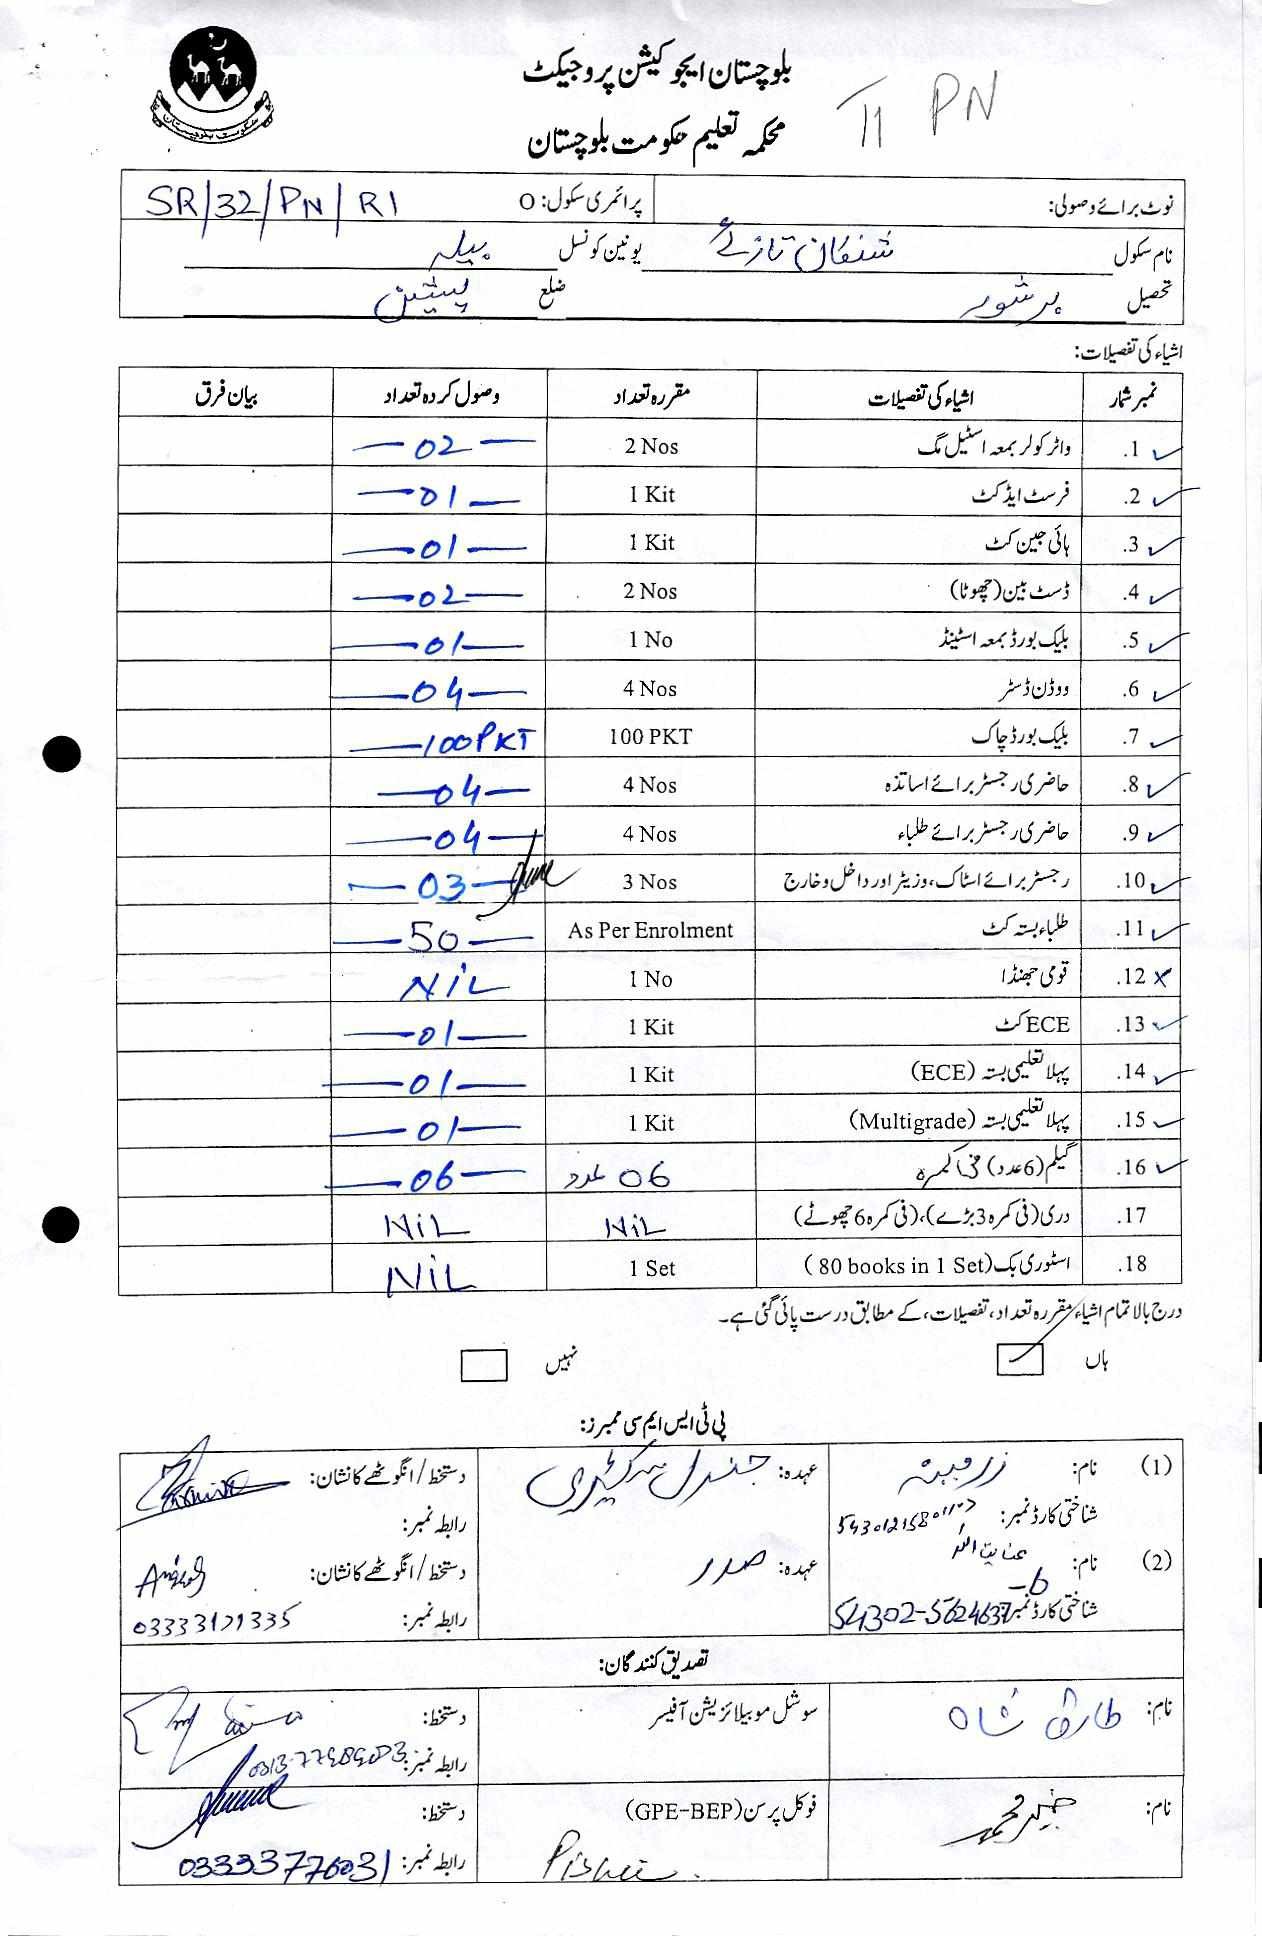 بلوچستان ایجوکیشن پروجیکٹ
محکمہ تعلیم حکومت بلوچستان
T1 PN
حکومت بلوچستان
نوٹ برائے وصولی: پرائمری سکول: O SR/32/PN/R1
نام سکول یونین کونسل
تحصیل برشور ضلع پشین
اشیاء کی تفصیلات:
نمبر شمار اشیاء کی تفصیلات مقررہ تعداد وصول کردہ تعداد بیان فرق
1. واٹر کولر بمعہ اسٹیل مگ 2 Nos 02
2. فرسٹ ایڈ کٹ 1 Kit 01
3. ہائی جین کٹ 1 Kit 01
4. ڈسٹ بین (چھوٹا) 2 Nos 02
5. بلیک بورڈ بمعہ اسٹینڈ 1 No 01
6. ووڈن ڈسٹر 4 Nos 04
7. بلیک بورڈ چاک 100 PKT 100 PKT
8. حاضری رجسٹر برائے اساتذہ 4 Nos 04
9. حاضری رجسٹر برائے طلباء 4 Nos 04
10. رجسٹر برائے اسٹاک، وزیٹر اور داخل و خارج 3 Nos 03
11. طلباء بستہ کٹ As Per Enrolment 50
12. قومی جھنڈا 1 No NiL
13. ECE کٹ 1 Kit 01
14. پہلا تعلیمی بستہ (ECE) 1 Kit 01
15. پہلا تعلیمی بستہ (Multigrade) 1 Kit 01
16. گیلم (6 عدد) فی کمرہ 06 عدد 06
17. دری (فی کمرہ 3 بڑے)، (فی کمرہ 6 چھوٹے) NiL NiL
18. اسٹوری بک (80 books in 1 Set) 1 Set NiL
درج بالا تمام اشیاء مقررہ تعداد، تفصیلات، کے مطابق درست پائی گئی ہے۔
ہاں نہیں
پی ٹی ایس ایم سی ممبرز:
(1) نام: زرمینہ عہدہ: جنرل سکیٹری دستخط/انگوٹھے کا نشان:
شناختی کارڈ نمبر: رابطہ نمبر:
(2) نام: عنایت اللہ عہدہ: صدر دستخط/انگوٹھے کا نشان:
شناختی کارڈ نمبر: 54302-5624637-6 رابطہ نمبر: 03333171335
تصدیق کنندگان:
نام: طارق شاہ سوشل موبیلائزیشن آفیسر دستخط:
رابطہ نمبر:
نام: فوکل پرسن (GPE-BEP) دستخط:
Pishin رابطہ نمبر: 03333776031